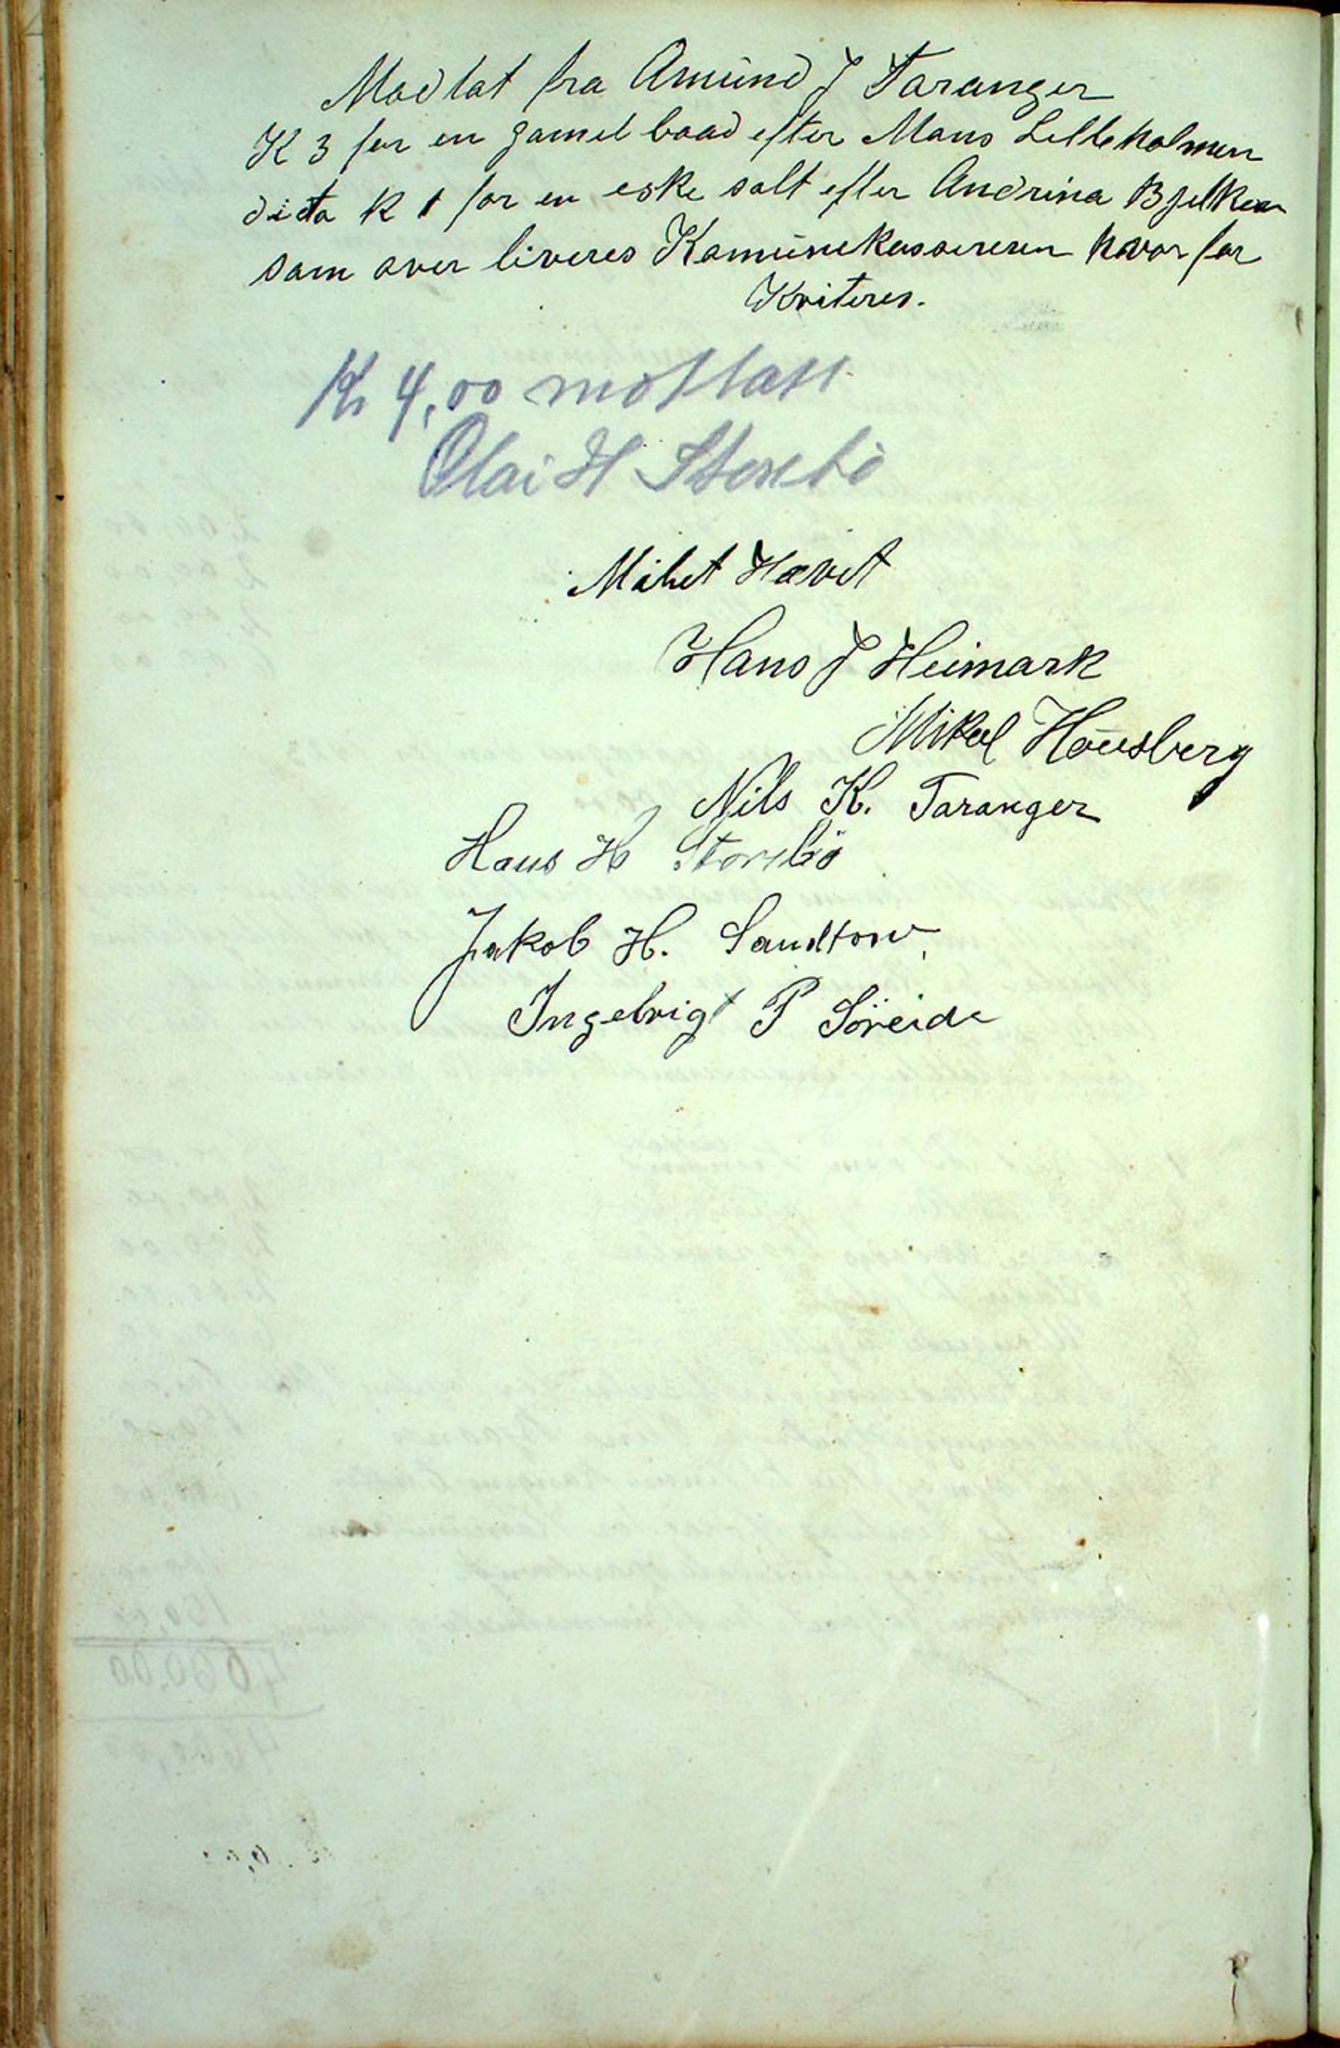 Modtat fra Amund J Taranger
K 3 for en gamel baad efter Mans Lilleholmen
dito k 1 for en eske salt efter Andrina Bjelkeøen
som over liveres Kamunekassereren hvor for
Kviteres.
Kr 4,00 mottatt
Olai H Storebö
Mötet Hævet
Hans J Heimark
Mikal Hausberg
Nils K. Taranger
Hans H Storebö
Jakob H. Sandtorv
Ingebrigt P Söreide